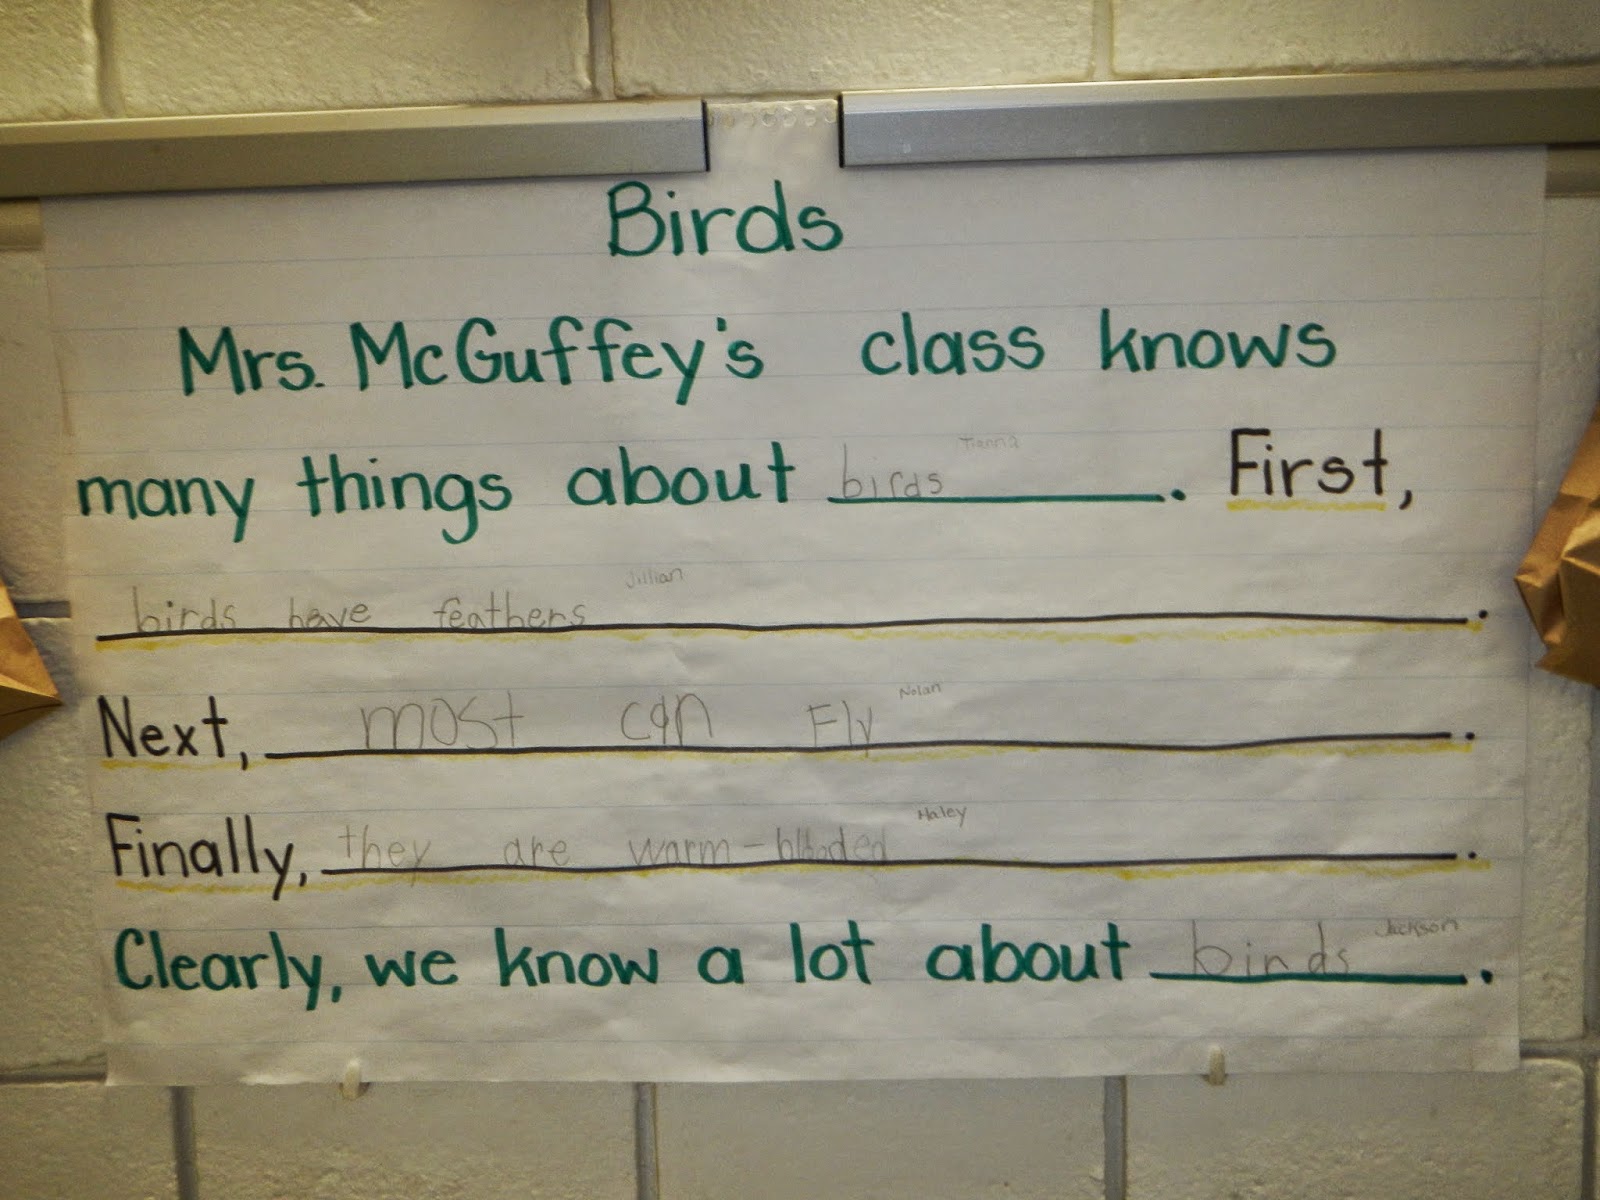 Birds
Mrs. McGuffey's class knows
Tianna
many things about birds. First,
Jillian
birds have feathers.
Nolan
Next, most can Fly.
Haley
Finally, they are warm-blooded.
Jackson
Clearly, we know a lot about birds.